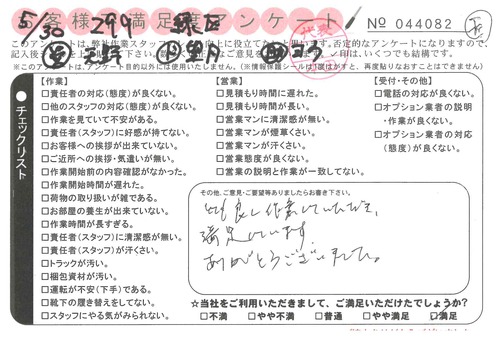 お客様満足度アンケート
5/30 299 緑区
№ 044082
このアンケートは、弊社作業スタッフ
記入後
※このアンケートは、アンケート目的以外には使用いたしません。(情報保護シールは1度はがすと、再度貼りなおすことはできません)
チェックリスト
【作業】
□責任者の対応(態度)が良くない。
□他のスタッフの対応(態度)が良くない。
□作業を見ていて不安がある。
□責任者(スタッフ)に好感が持てない。
□お客様への挨拶が出来ていない。
□ご近所への挨拶・気遣いが無い。
□作業開始前の内容確認がなかった。
□作業開始時間が遅れた。
□荷物の取り扱いが雑である。
□お部屋の養生が出来ていない。
□作業時間が長すぎる。
□責任者(スタッフ)に清潔感が無い。
□責任者(スタッフ)が汗くさい。
□トラックが汚い。
□梱包資材が汚い。
□運転が不安(下手)である。
□靴下の履き替えをしてない。
□スタッフにやる気がみられない。
【営業】
□見積もり時間に遅れた。
□見積もり時間が長い。
□営業マンに清潔感が無い。
□営業マンが煙草くさい。
□営業マンが汗くさい。
□営業態度が良くない。
□営業の説明と作業が一致してない。
【受付・その他】
□電話の対応が良くない。
□オプション業者の説明
・作業が良くない。
□オプション業者の対応
(態度)が良くない。
その他、ご意見・ご要望等ありましたらお書き下さい。
良い作業していただき、
満足しています。
ありがとうございました。
☆当社をご利用いただきまして、ご満足いただけたでしょうか?
□不満 □やや不満 □普通 □やや満足 ☑満足